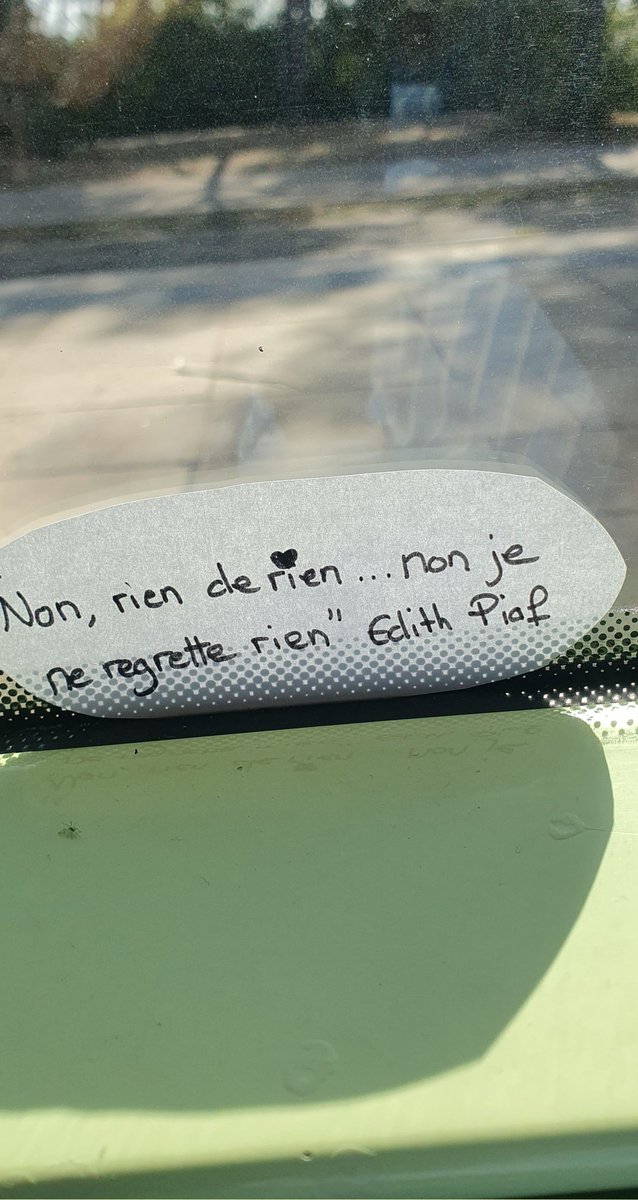 Non, rien de rien... non je
ne regrette rien" Edith Piaf